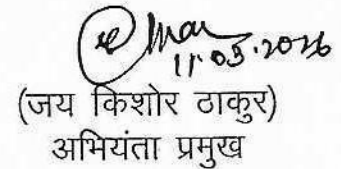 11.05.2026
(जय किशोर ठाकुर)
अभियंता प्रमुख